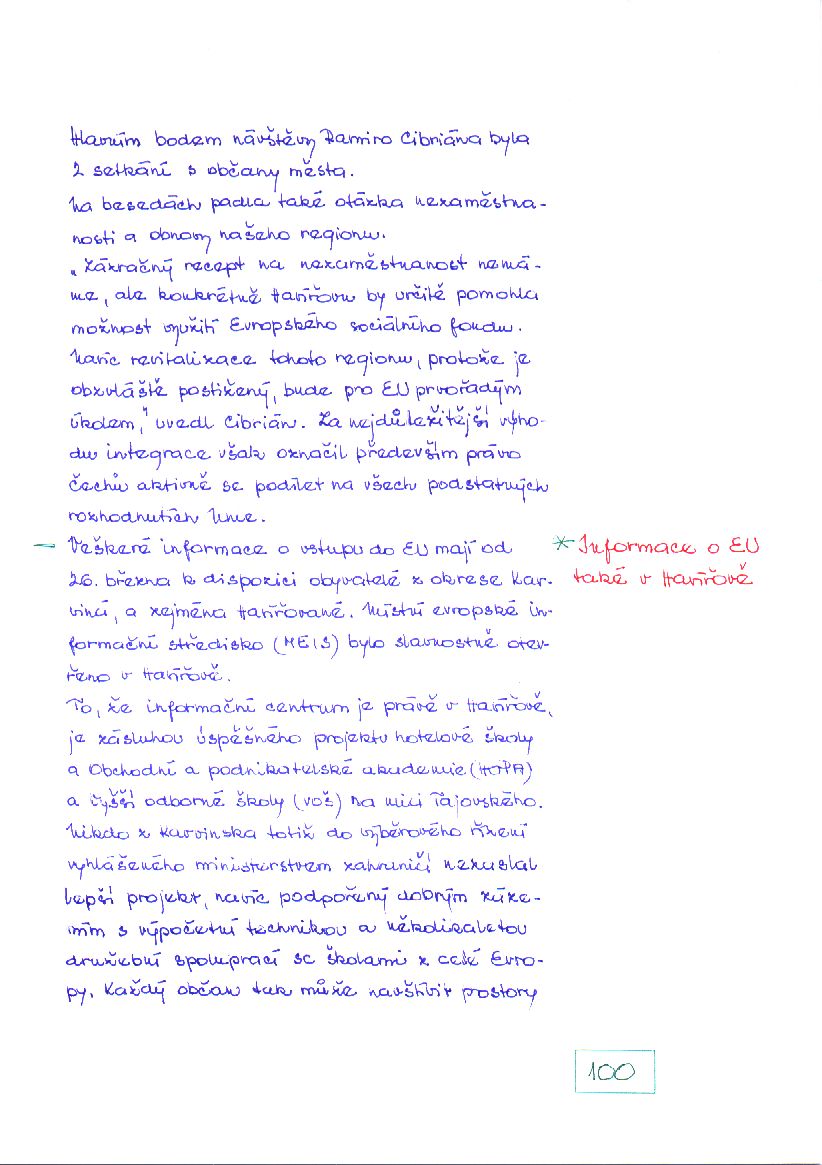 Hlavním bodem návštěvy Ramiro Cibriána byla
2 setkání s občany města.
Na besedách padla také otázka nezaměstna-
nosti a obnovy našeho regionu.
„Zázračný recept na nezaměstnanost nemá-
me, ale konkrétně Havířovu by určitě pomohla
možnost využití Evropského sociálního fondu.
Navíc revitalizace tohoto regionu, protože je
obzvláště postižený, bude pro EU prvořadým
úkolem," uvedl Cibrián. Za nejdůležitější výho-
du integrace však označil především právo
Čechů aktivně se podílet na všech podstatných
rozhodnutích Unie.
– Veškeré informace o vstupu do EU mají od
26. března k dispozici obyvatelé z okrese Kar-
viná, a zejména Havířované. Místní evropské in-
formační středisko (MEIS) bylo slavnostně otev-
řeno v Havířově.
To, že informační centrum je právě v Havířově,
je zásluhou úspěšného projektu hotelové školy
a Obchodní a podnikatelské akademie (HOPA)
a Vyšší odborné školy (VOŠ) na ulici Tajovského.
Nikdo z Karvinska totiž do výběrového řízení
vyhlášeného ministerstvem zahraničí nezaslal
lepší projekt, navíc podpořený dobrým záze-
mím s výpočetní technikou a několikaletou
družební spoluprací se školami z celé Evro-
py. Každý občan tak může navštívit postory
* Informace o EU
také v Havířově
100